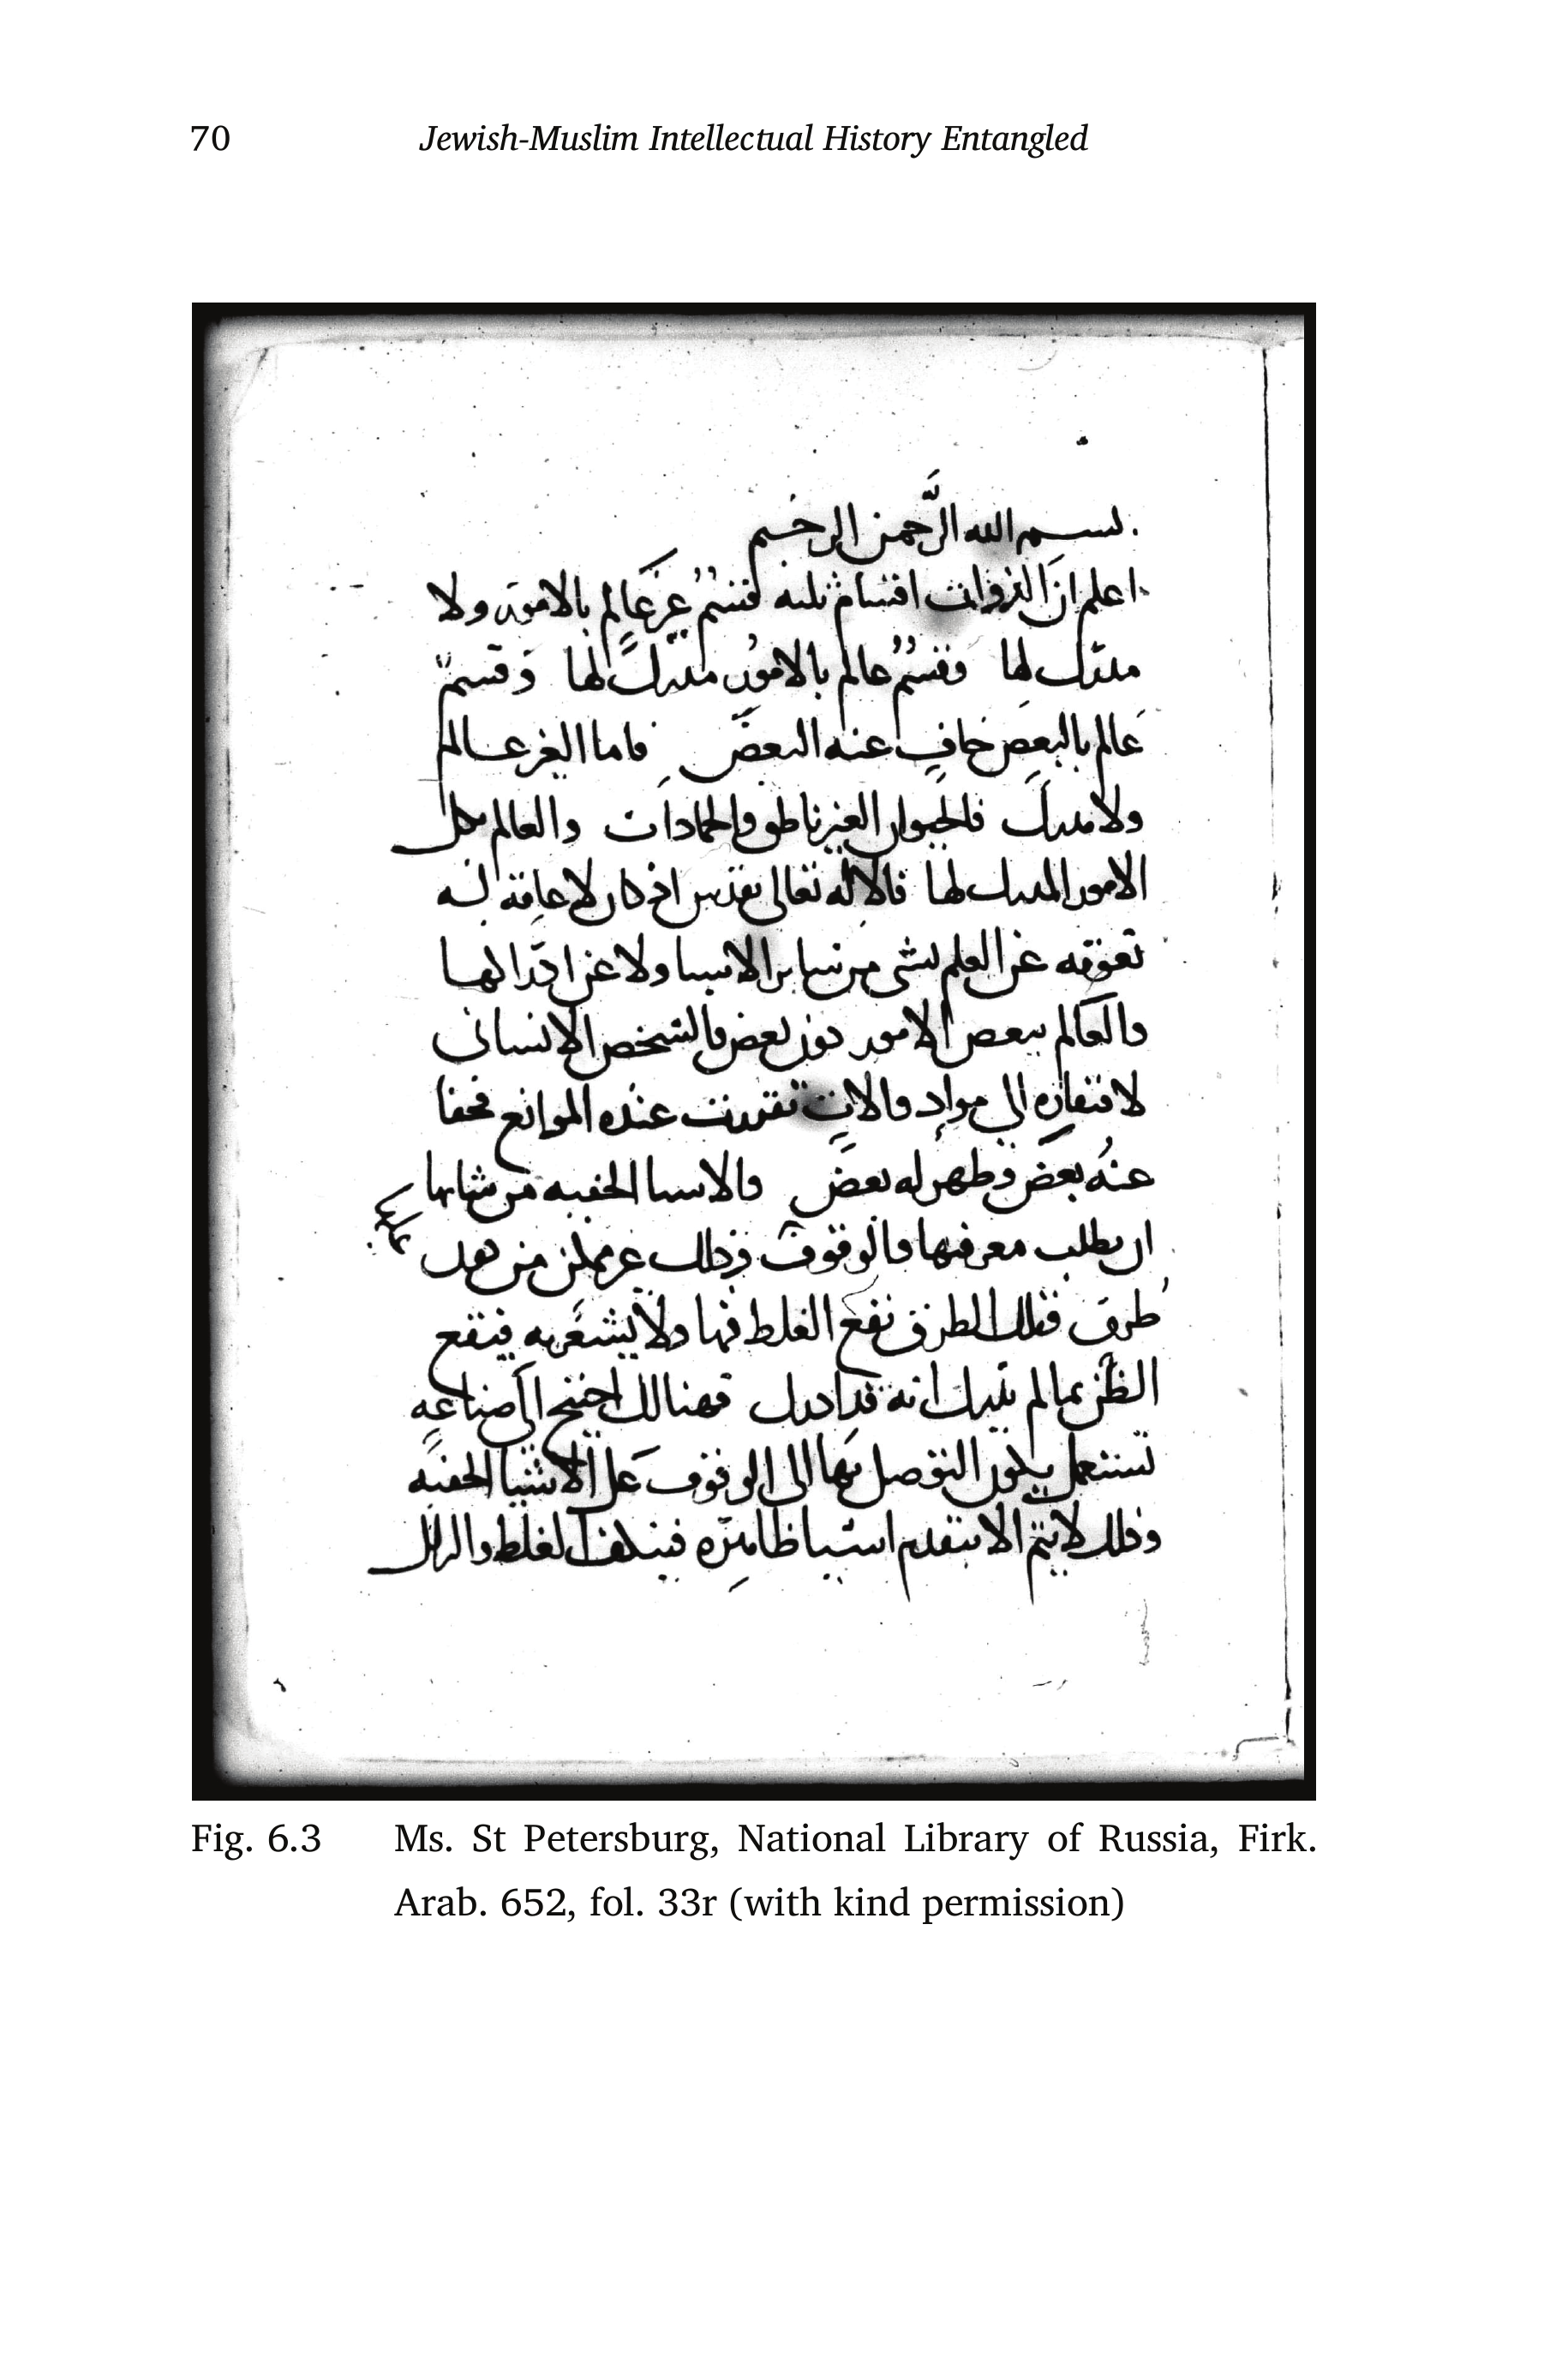 70 Jewish-Muslim Intellectual History Entangled
بسم الله الرَّحمن الرحيم
اعلم انَ الذوات اقسام ثلثه فقسمٌ غير عَالم بالامور ولا
مدرك لها وقسمٌ عالم بالامور مدركً لها وَقسمٌ
عَالم بالبعض خافٍ عنه البعض فاما الغير عالم
ولا مدرك فالحيوان الغير ناطق والجمادات والعالم بكل
الامور المدرك لها فالاله تعالى تقدس اذ كان لا عاقه له
تعوقه عن العلم بشى من ساير الاشيا ولا عن ادراكها
والعَالم ببعض الامور دون بعض فالشخص الانسانى
لافتقاره الي مواد والات عنده الموانع فخفا
عنهُ بعض وظهر له بعض والاشيا الخفيه من شانها
ان يطلب معرفتها والوقوف وذلك غير ممكن من
طرق فتلك الطرق تقع الغلط فيها ولا يشعَر به فيقع
الظن بما لم يدرك انه قد ادرك فهنالك احتيج الي صناعهٍ
تستعمل يكون التوصل بها الى الوقوف عَلى الاشيا الخفيه
وذلك لا يتم الا بتقدم الغلط والزلل
Fig. 6.3 Ms. St Petersburg, National Library of Russia, Firk.
Arab. 652, fol. 33r (with kind permission)